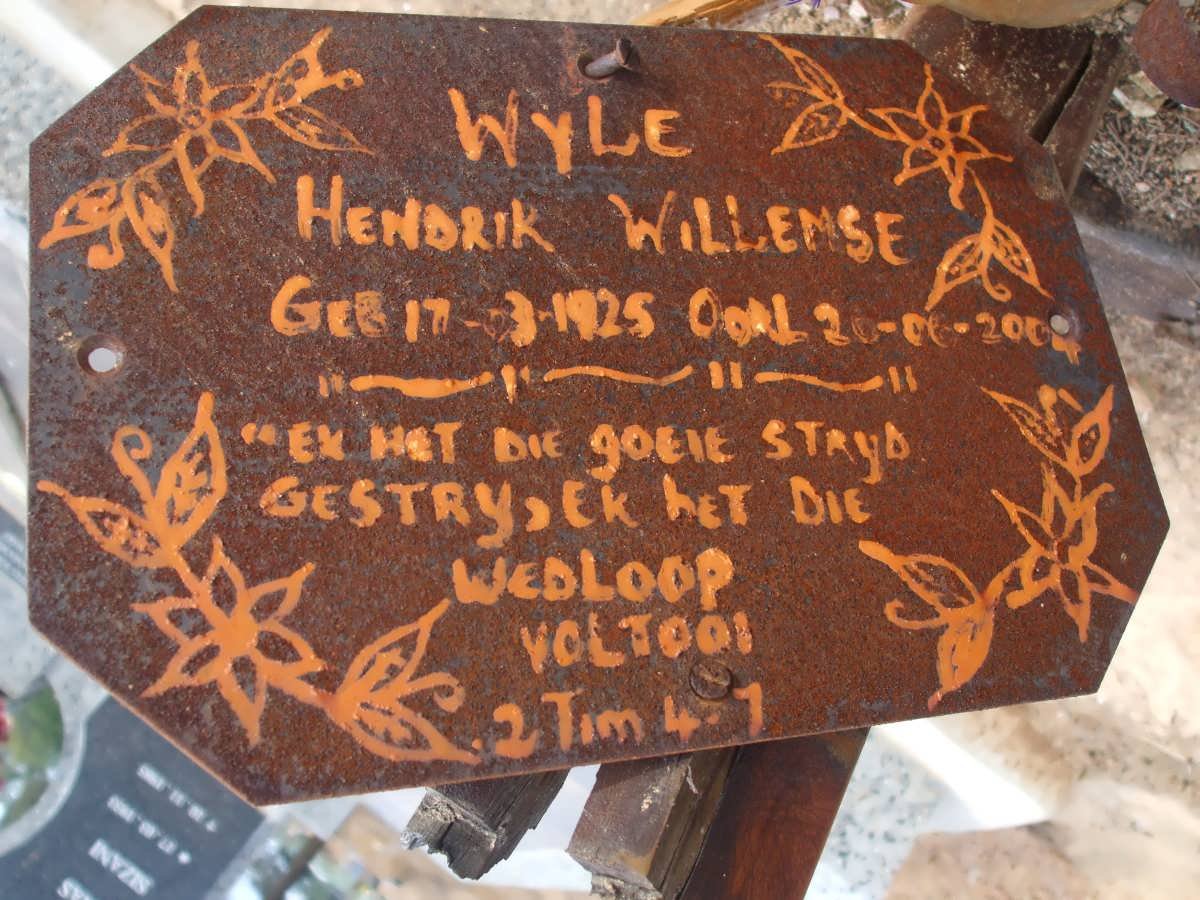 WYLE
HENDRIK WILLEMSE
GEB 17-03-1925 OORL 20-06-2004
"EK HET DIE GOEIE STRYD
GESTRY, EK HET DIE
WEDLOOP
VOLTOOI
2 TIM 4-7
SIZANI